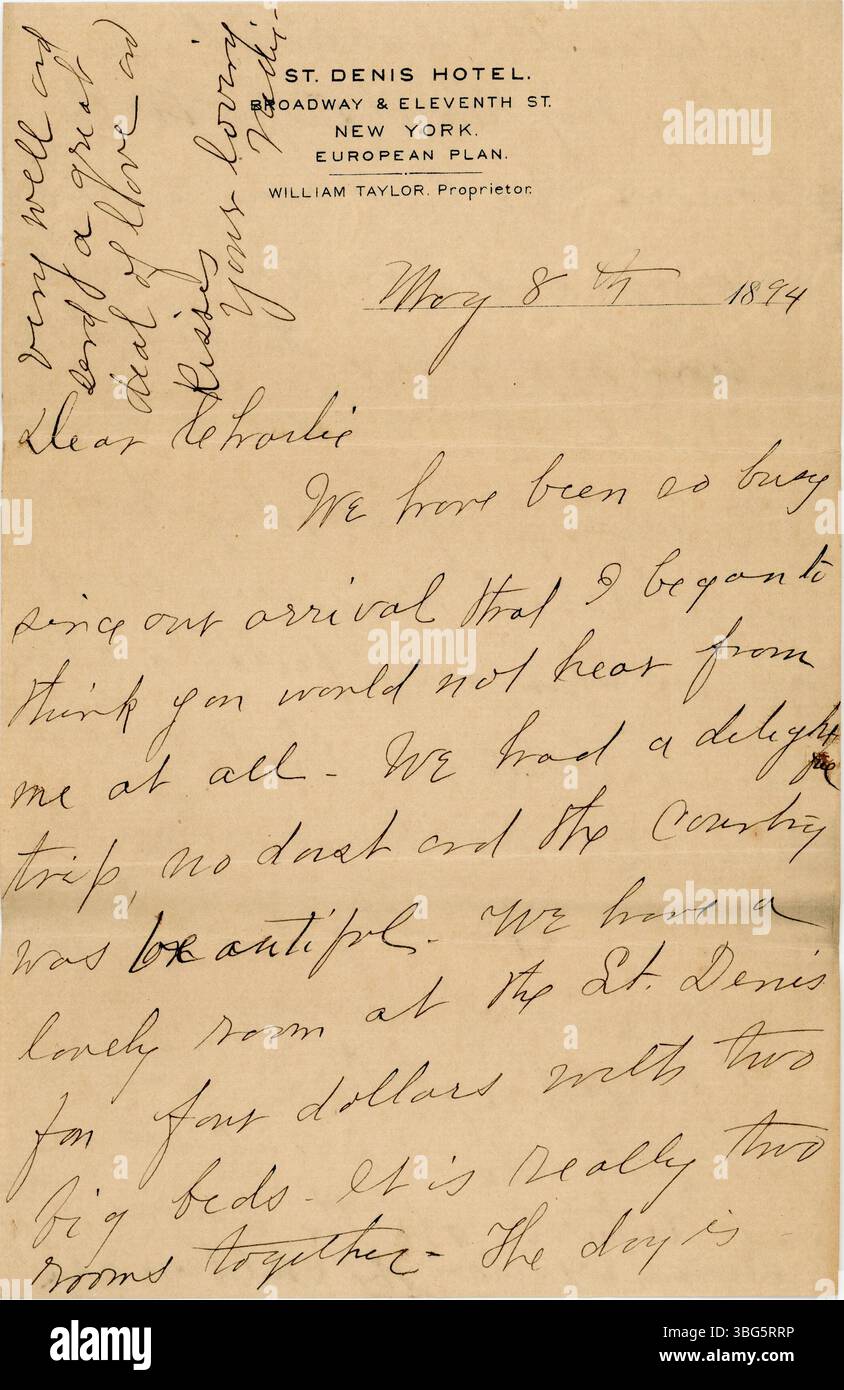 ST. DENIS HOTEL.
BROADWAY & ELEVENTH ST.
NEW YORK.
EUROPEAN PLAN.
WILLIAM TAYLOR. Proprietor.
May 8th 1894
Dear Charlie
We have been so busy
since our arrival that I began to
think you would not hear from
me at all - We had a delight
ful
trip, no dust and the country
was beautiful. We have a
lovely room at the St. Denis
for four dollars with two
big beds - It is really two
rooms together - The day is
very well and
send a great
deal of love and
Kisses
Your loving
alamy
Image ID: 3BG5RRP
www.alamy.com